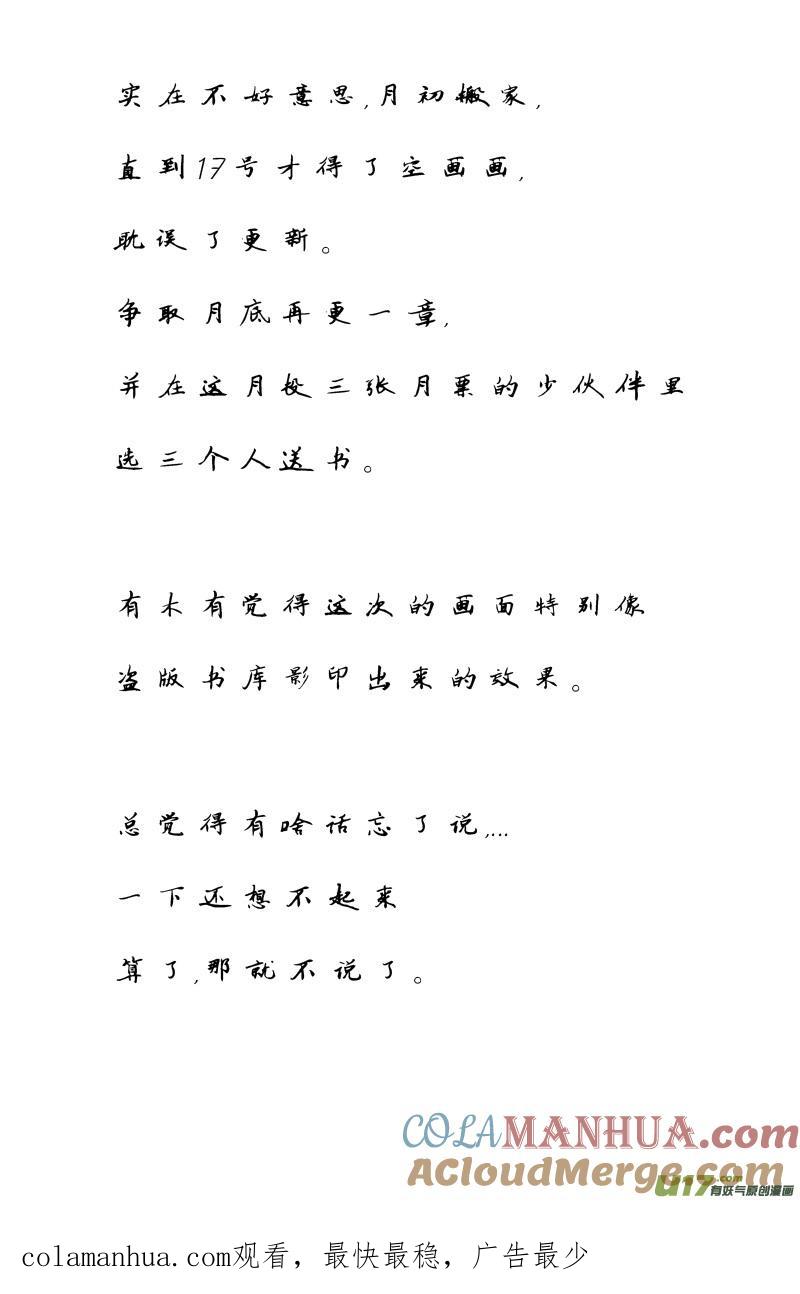 实在不好意思,月初搬家,
直到17号才得了空画画,
耽误了更新。
争取月底再更一章,
并在这月投三张月票的少伙伴里
选三个人送书。
有木有觉得这次的画面特别像
盗版书库影印出来的效果。
总觉得有啥话忘了说,...
一下还想不起来
算了,那就不说了。
COLAMANHUA.com
ACloudMerge.com
U17.com
有妖气原创漫画
colamanhua.com观看，最快最稳，广告最少